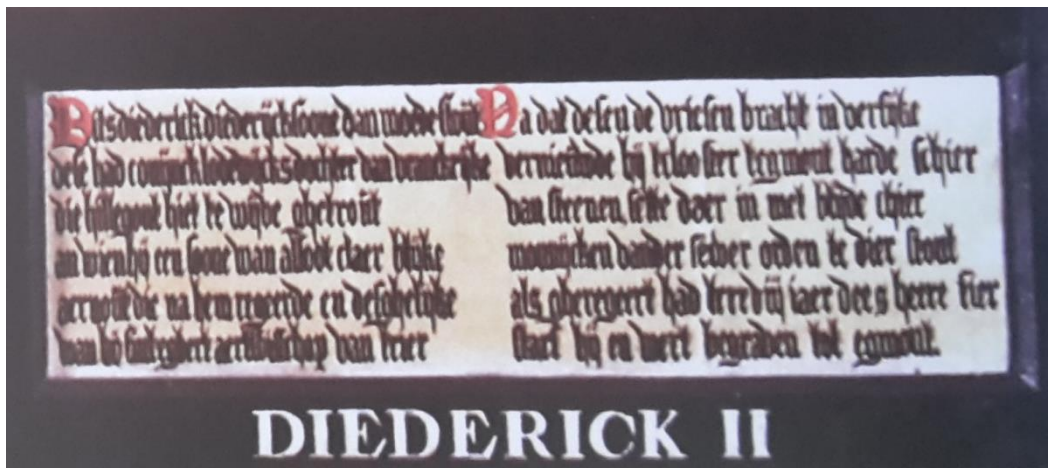 Dits diederick diederijcksoone van moede stout
dese had coninck lodewijcks dochter van vranckrijke
die hillegont hiet te wijve ghetrout
an wien hij een soone wan alsoot claer blijke
aernout die na hem regeerde en desghelijke
van egbert aertsbisschop van trier
Na dat desen de vriesen bracht in versijke
vernieude hij tclooster tegmont harde schier
van steenen sette daer in met blijde chier
monnicken vander selver orden te dier stont
als gheregeert had jaer dees heere fier
starf hij en wert begraven tot egmont.
DIEDERICK II